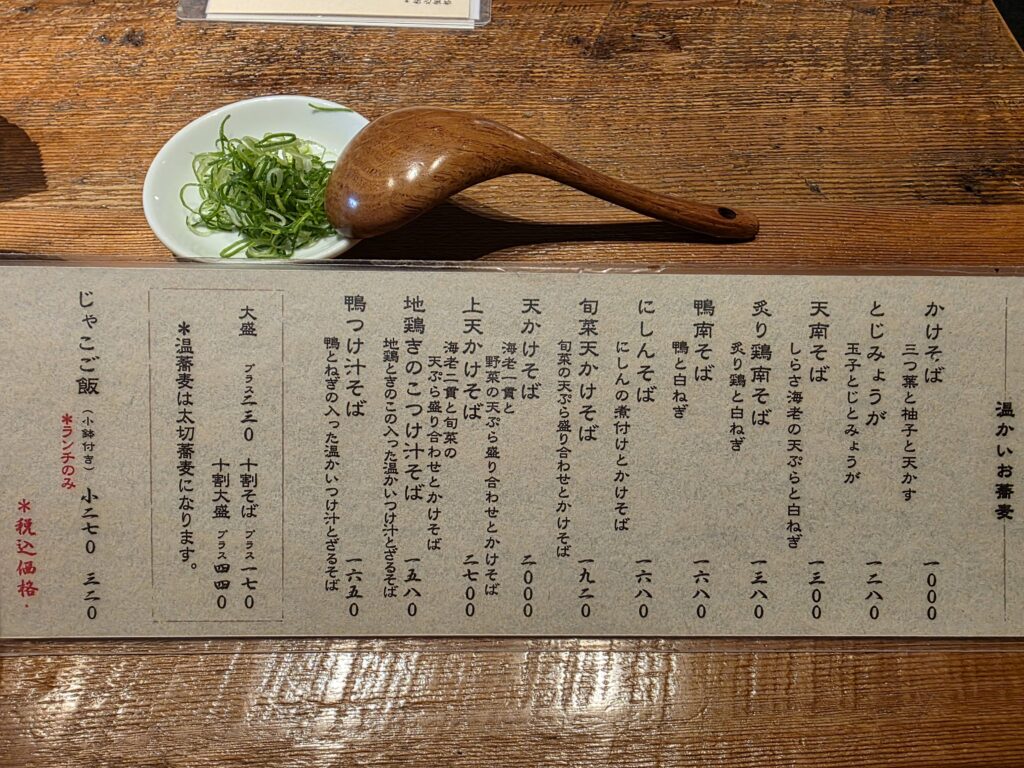 温かいお蕎麦
かけそば 一000
三つ葉と柚子と天かす
とじみょうが 一二八0
玉子とじとみょうが
天南そば 一三00
しらさ海老の天ぷらと白ねぎ
炙り鶏南そば 一三八0
炙り鶏と白ねぎ
鴨南そば 一六八0
鴨と白ねぎ
にしんそば 一六八0
にしんの煮付けとかけそば
旬菜天かけそば 一九二0
旬菜の天ぷら盛り合わせとかけそば
天かけそば 二000
海老二貫と
野菜の天ぷら盛り合わせとかけそば
上天かけそば 二七00
海老二貫と旬菜の
天ぷら盛り合わせとかけそば
地鶏きのこつけ汁そば 一五八0
地鶏ときのこの入った温かいつけ汁とざるそば
鴨つけ汁そば 一六五0
鴨とねぎの入った温かいつけ汁とざるそば
大盛 プラス二三0 十割そば プラス一七0
十割大盛 プラス四四0
*温蕎麦は太切蕎麦になります。
じゃこご飯 (小鉢付き) 小二七0 三二0
*ランチのみ
*税込価格.